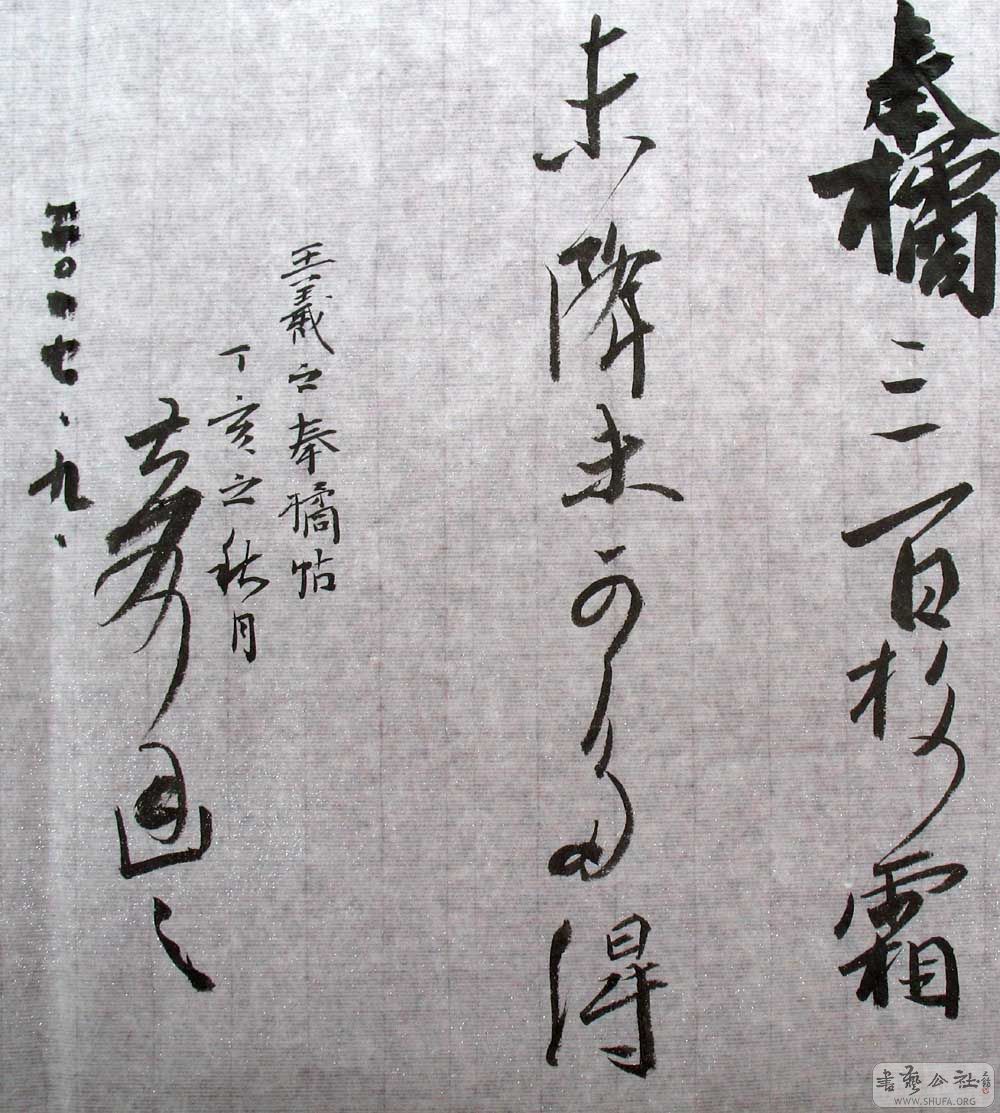 奉橘三百枚霜
未降未可多得
王羲之奉橘帖
丁亥之秋月
之
二〇〇七、九、
書藝公社
WWW.SHUFA.ORG